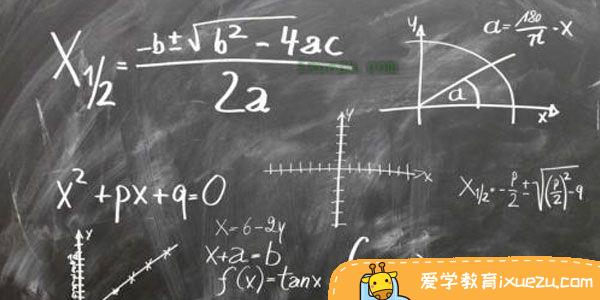 X₁/₂ = (-b ± √(b² - 4ac)) / 2a
y
a = 180/π · x
a
x
y
x
x² + px + q = 0
X₁/₂ = -p/2 ± √((p/2)² - q
x = 6 - 2y
x + a = b
f(x) = tanx
y
f
爱学教育ixuezu.com